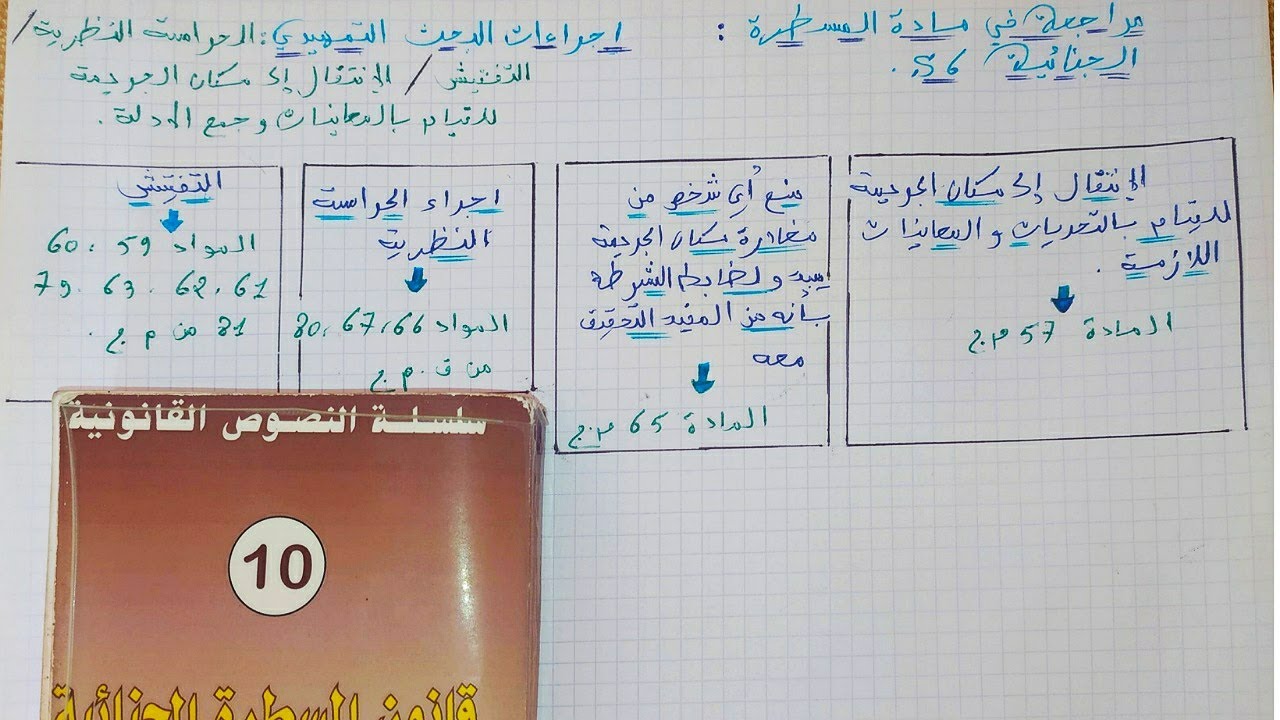 مراجعة في مادة المسطرة :
الجنائية / S6.
اجراءات البحث التمهيدي : الحراسة النظرية /
التفتيش / الإنتقال إلى مكان الجريمة
للقيام بالمعاينات وجمع الأدلة .
الإنتقال إلى مكان الجريمة
للقيام بالتحريات و المعاينات
اللازمة .
المادة 57 م.ج
منع أي شخص من
مغادرة مكان الجريمة
يبدو لضابط الشرطة
بأنه من المفيد التحقيق
معه
المادة 65 م.ج
اجراء الحراسة
النظرية
المواد 66، 67، 80
من ق.م.ج
التفتيش
المواد 59 ، 60
61 ، 62 ، 63 ، 79
81 من م ج .
سلسلة النصوص القانونية
10
قانون المسطرة الجنائية